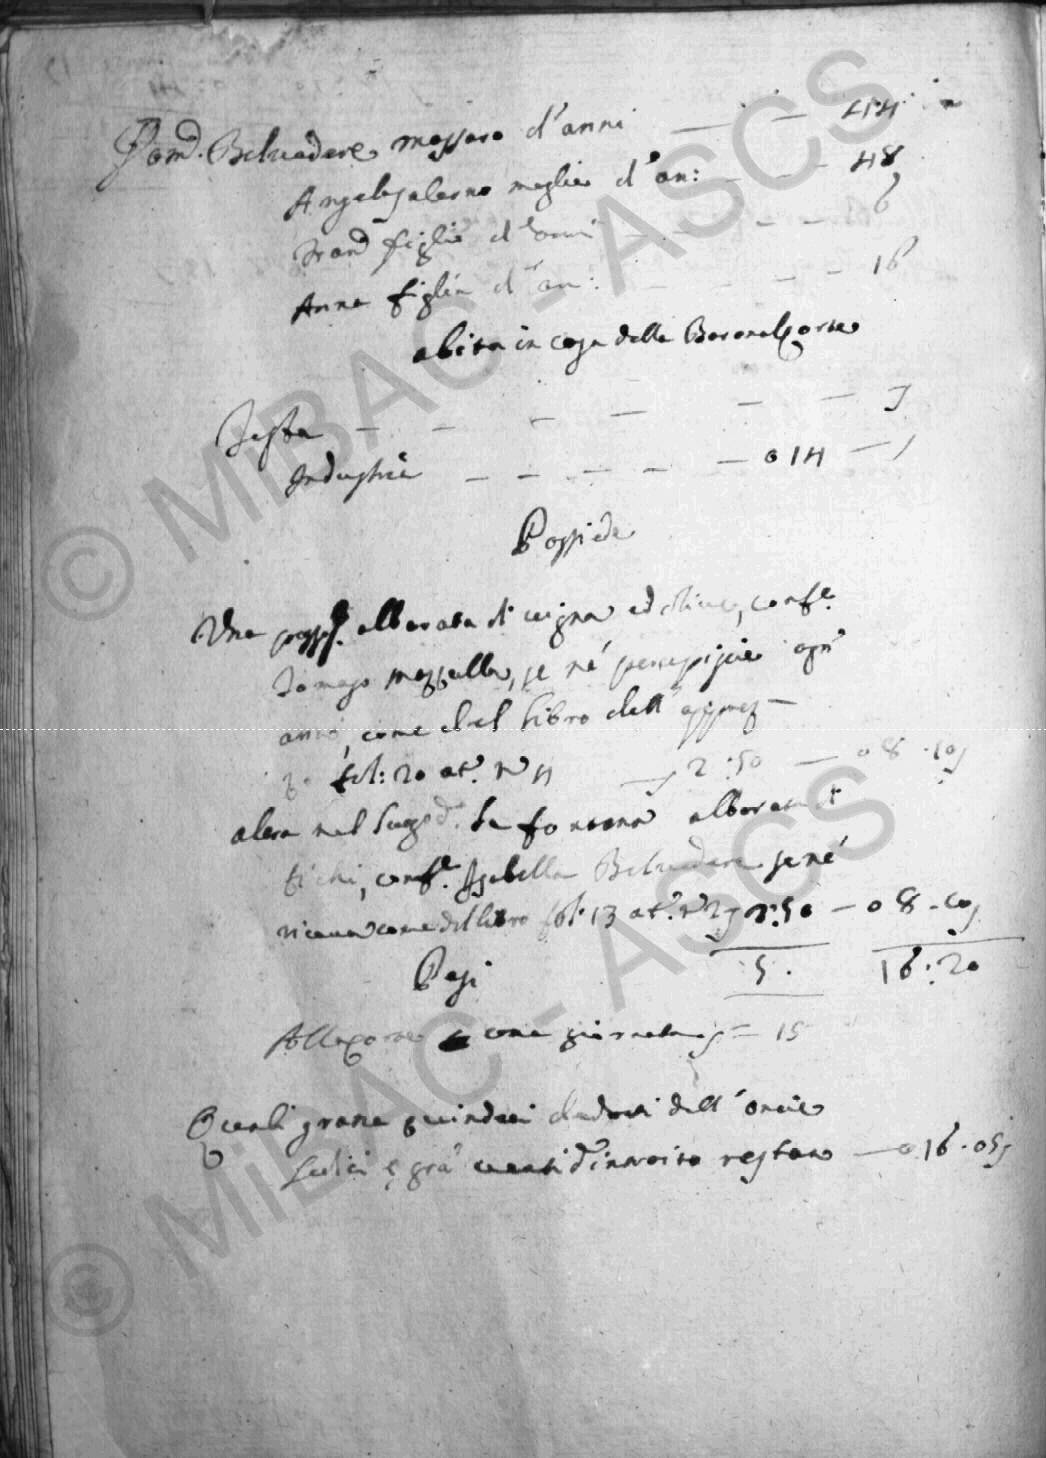 Dom.co Belvedere massaro d'anni — — — 44
Angela Salerno moglie d'an: — — — 48
Fran.co figlio d'anni — — — 6
Anna figlia d'an: — — — 16
abita in casa della Baronal Corte
Testa — — — — — —
Industria — — — — — 014 —
Possiede
Una possess.e alborata di vigna ed olive, conf.e
Tomaso Mazzulla, se né percepisce ogn'
anno, come dal libro dell'apprez—
zo fol: 20 at.o n.o 11 — 2:50 — 08 · 10
altra nel luogo d.o la fontana alborata di
fichi, conf.e Isabella Belvedere se né
ricava come del libro fol: 13 at.o n.o 27 2:50 — 08 · 10
5 · 16:20
Pesi
Alla Corte una giornata — 15
Quali grana quindici dedotti dall'oncie
sedici e gra' venti d'introito restano — 016 · 05
© MiBAC - ASCS
© MiBAC - ASCS